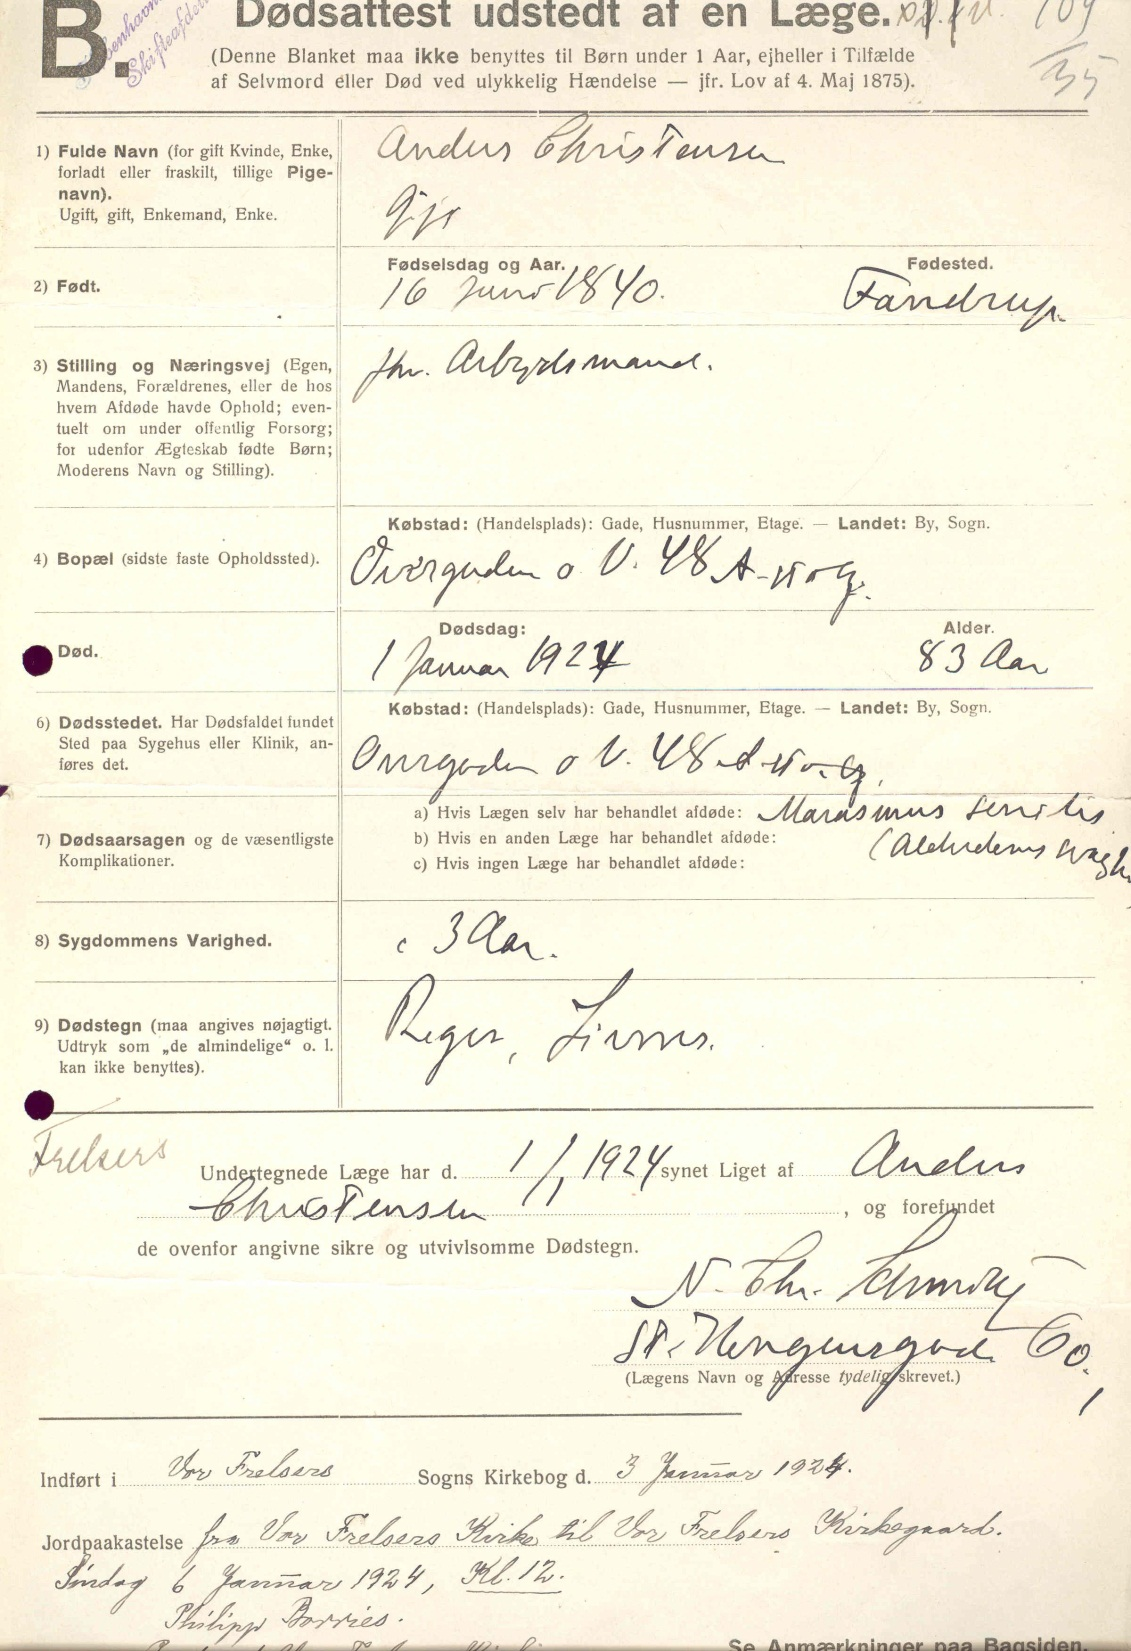 B. Dødsattest udstedt af en Læge.
(Denne Blanket maa ikke benyttes til Børn under 1 Aar, ejheller i Tilfælde
af Selvmord eller Død ved ulykkelig Hændelse — jfr. Lov af 4. Maj 1875).
1) Fulde Navn (for gift Kvinde, Enke,
forladt eller fraskilt, tillige Pige-
navn).
Ugift, gift, Enkemand, Enke.
Anders Christensen
gift
2) Født.
Fødselsdag og Aar.
16 Juni 1840.
Fødested.
Fandrup.
3) Stilling og Næringsvej (Egen,
Mandens, Forældrenes, eller de hos
hvem Afdøde havde Ophold; even-
tuelt om under offentlig Forsorg;
for udenfor Ægteskab fødte Børn;
Moderens Navn og Stilling).
fhv. Arbejdsmand.
4) Bopæl (sidste faste Opholdssted).
Købstad: (Handelsplads): Gade, Husnummer, Etage. — Landet: By, Sogn.
Overgaden o V. 48 A
Død.
Dødsdag:
1 Januar 1924
Alder.
83 Aar
6) Dødsstedet. Har Dødsfaldet fundet
Sted paa Sygehus eller Klinik, an-
føres det.
Købstad: (Handelsplads): Gade, Husnummer, Etage. — Landet: By, Sogn.
Overgaden o V. 48 A
7) Dødsaarsagen og de væsentligste
Komplikationer.
a) Hvis Lægen selv har behandlet afdøde: Marasmus senilis
b) Hvis en anden Læge har behandlet afdøde: (Alderdoms svagh
c) Hvis ingen Læge har behandlet afdøde:
8) Sygdommens Varighed.
c 3 Aar.
9) Dødstegn (maa angives nøjagtigt.
Udtryk som „de almindelige“ o. l.
kan ikke benyttes).
Rigor, Livores.
Frelsers
Undertegnede Læge har d. 1/1 1924 synet Liget af Anders
Christensen, og forefundet
de ovenfor angivne sikre og utvivlsomme Dødstegn.
N. Chr. Schmidt
St. Kongensgade 60.
(Lægens Navn og Adresse tydelig skrevet.)
Indført i Vor Frelsers Sogns Kirkebog d. 3 Januar 1924.
Jordpaakastelse fra Vor Frelsers Kirke til Vor Frelsers Kirkegaard.
Søndag 6 Januar 1924, Kl. 12.
Philipp Borries.
Se Anmærkninger paa Bagsiden.